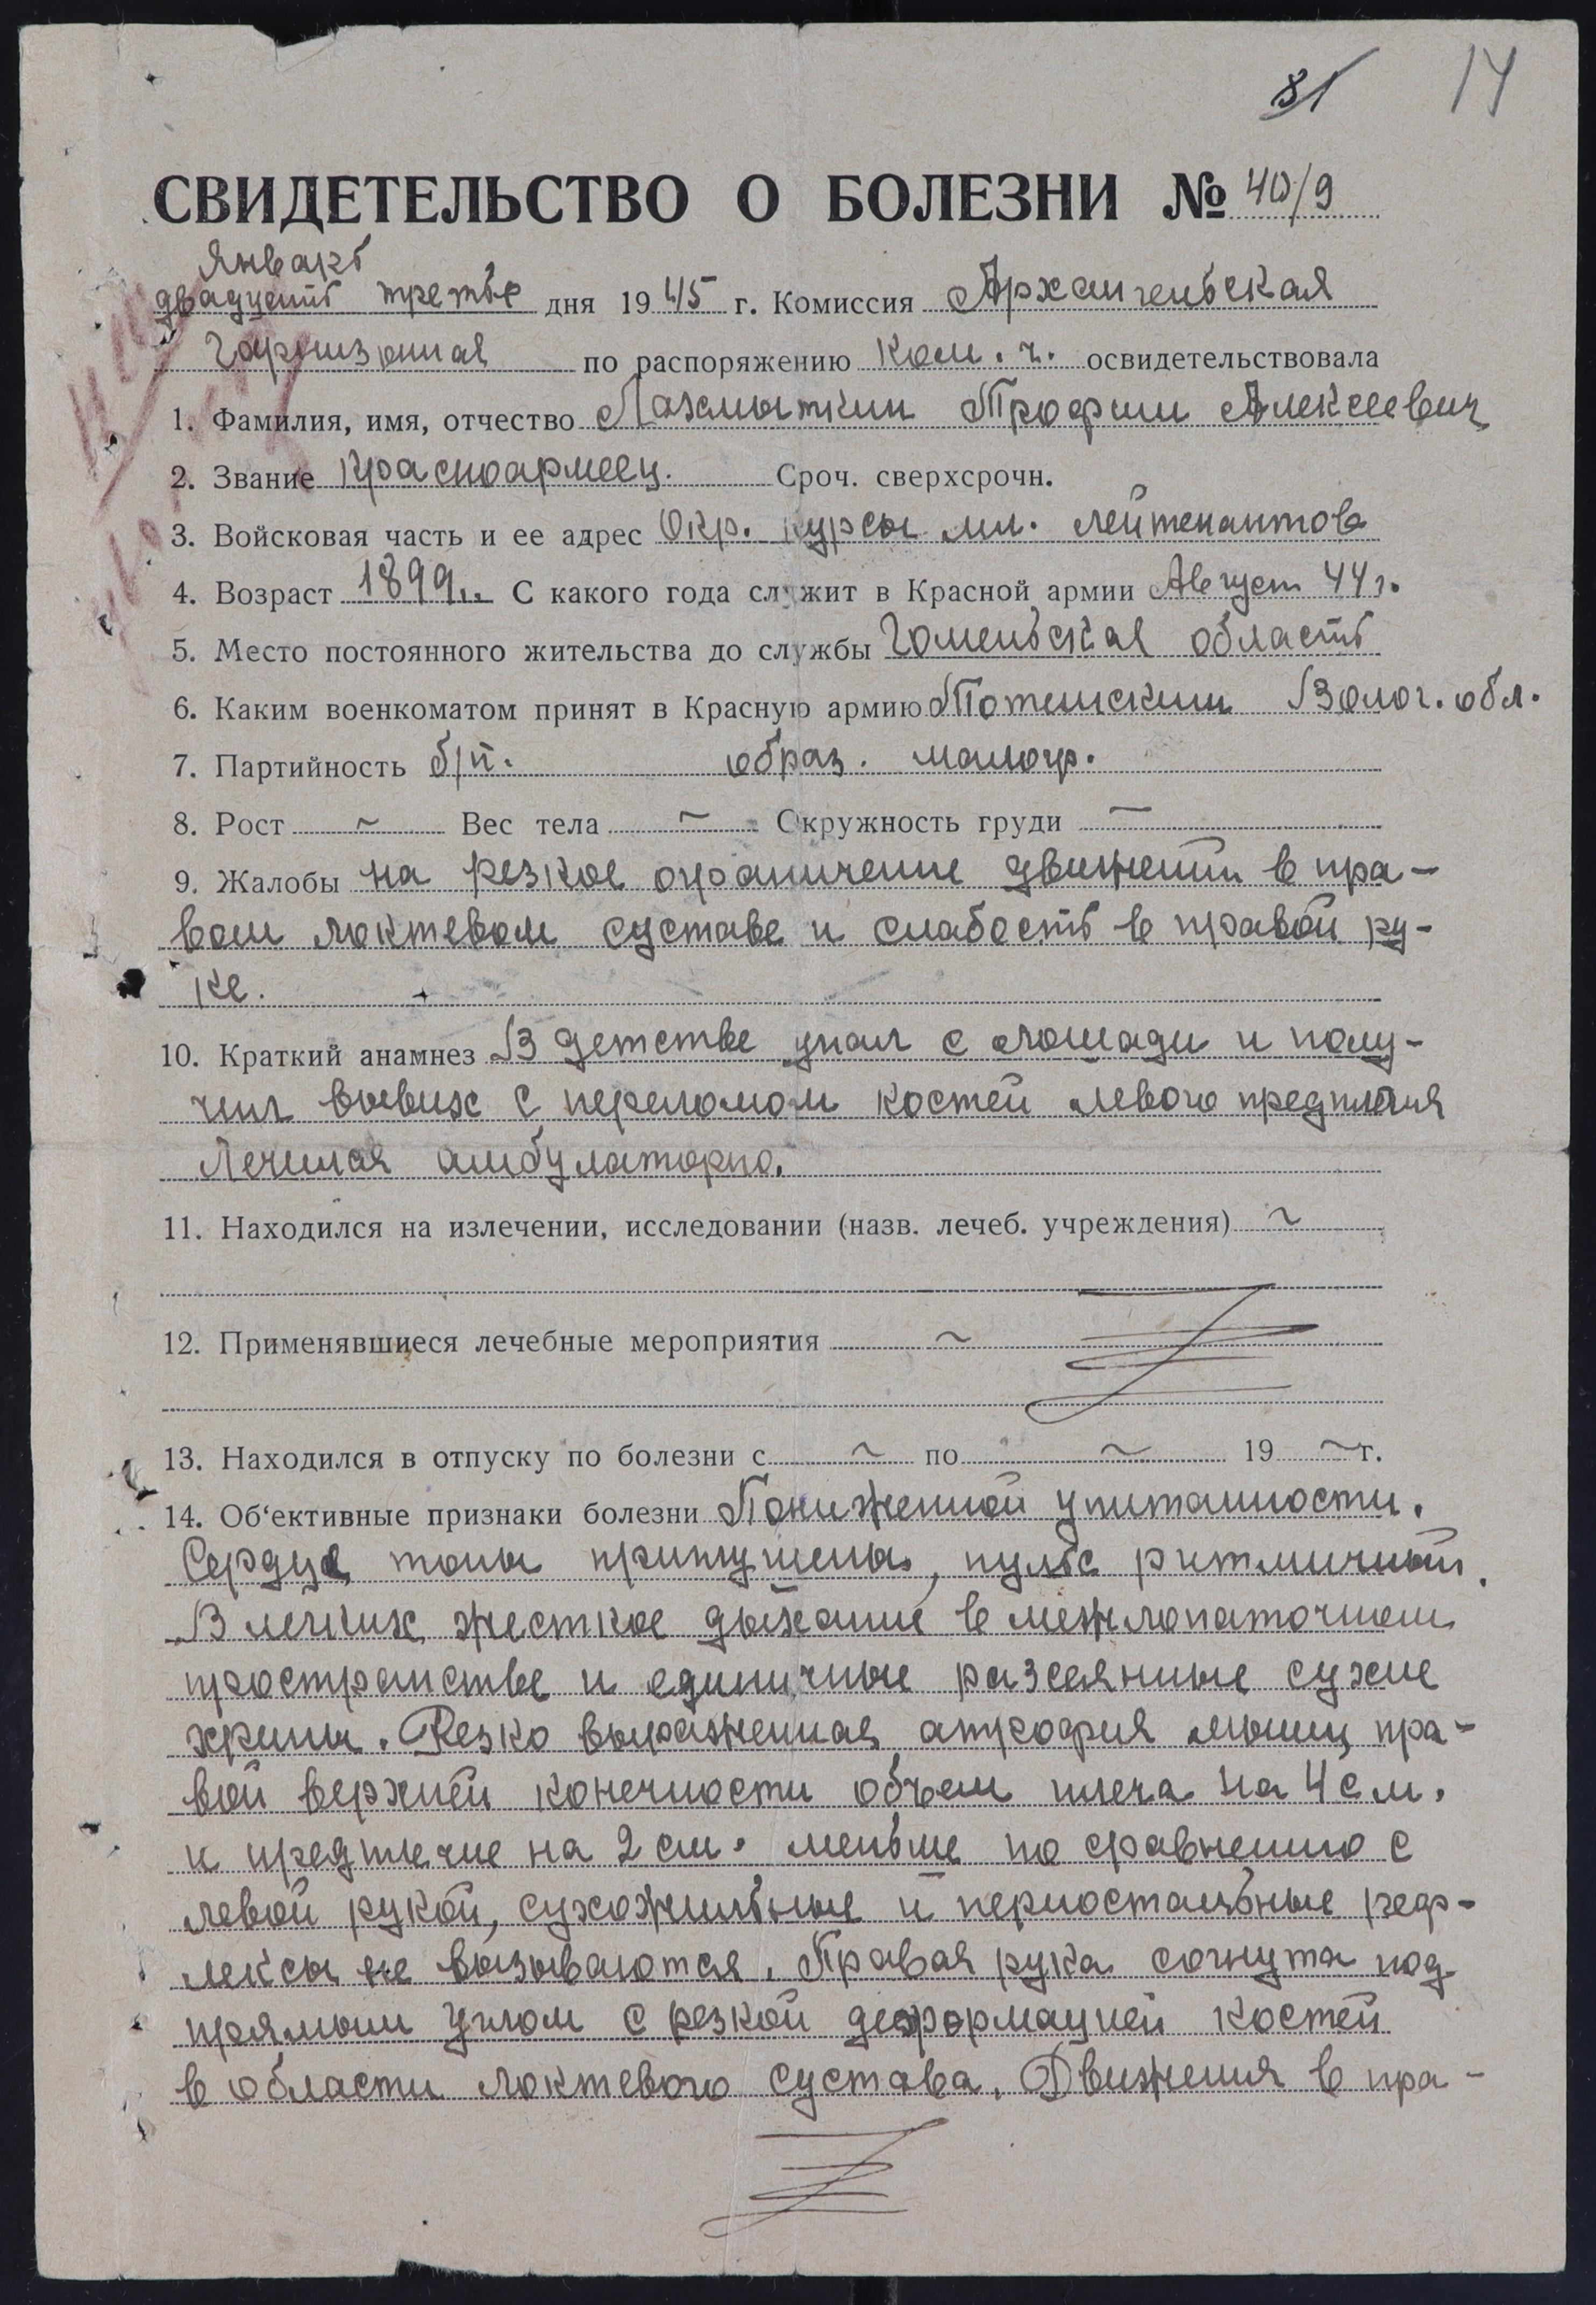 81 14
СВИДЕТЕЛЬСТВО О БОЛЕЗНИ № 40/9
Январь
двадцать третье дня 1945 г. Комиссия Архангельская
Гарнизонная по распоряжению Ком. ч. освидетельствовала
1. Фамилия, имя, отчество Лахмыткин Трофим Алексеевич
2. Звание Красноармеец. Сроч. сверхсрочн.
3. Войсковая часть и ее адрес Окр. курсы мл. лейтенантов
4. Возраст 1899 С какого года служит в Красной армии Август 44 г.
5. Место постоянного жительства до службы Гомельская область
6. Каким военкоматом принят в Красную армию Тотемским Волог. обл.
7. Партийность б/п. образ. малогр.
8. Рост ~ Вес тела ~ Окружность груди —
9. Жалобы на резкое ограничение движений в пра-
вом локтевом суставе и слабость в правой ру-
ке.
10. Краткий анамнез В детстве упал с лошади и полу-
чил вывих с переломом костей левого предплечия
Лечился амбулаторно.
11. Находился на излечении, исследовании (назв. лечеб. учреждения) ~
12. Применявшиеся лечебные мероприятия ~
13. Находился в отпуску по болезни с ~ по ~ 19 ~ г.
14. Об‘ективные признаки болезни Пониженной упитанности.
Сердце тоны приглушены, пульс ритмичный.
В легких жесткое дыхание в межлопаточном
пространстве и единичные разсеянные сухие
хрипы. Резко выраженная атрофия мышц пра-
вой верхней конечности объем плеча на 4 см.
и предплечие на 2 см. меньше по сравнению с
левой рукой, сухожильные и периостальные реф-
лексы не вызываются. Правая рука согнута под
прямым углом с резкой деформацией костей
в области локтевого сустава. Движения в пра-